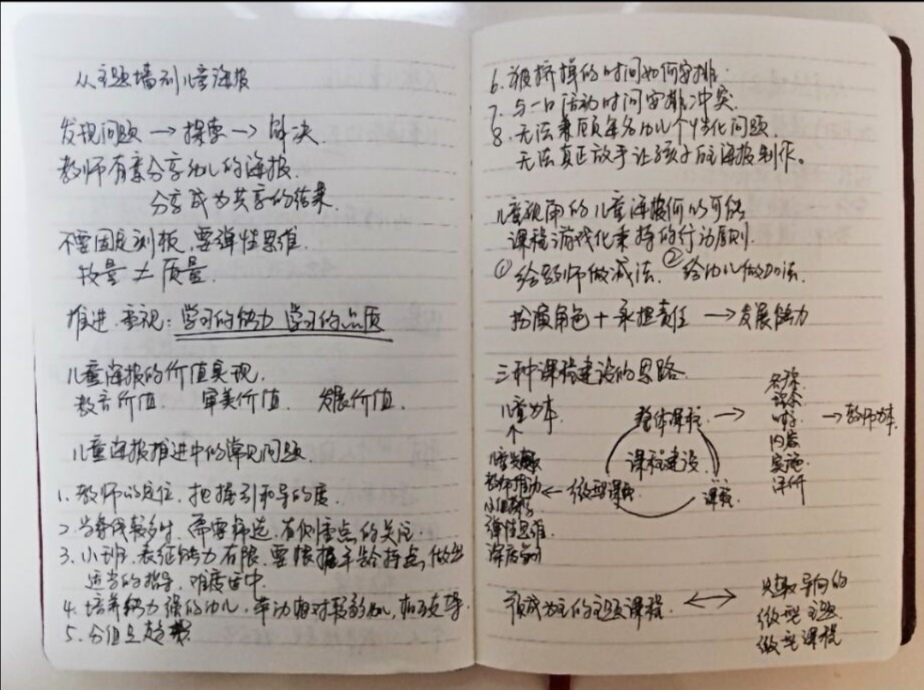 从主题墙到儿童海报
发现问题→探索→解决
教师有意分享幼儿的海报.
分享成为共享的结果.
不要固定刻板,要弹性思维.
数量≠质量.
推进.重视:学习的能力 学习的品质
儿童海报的价值实现.
教育价值. 审美价值. 发展价值.
儿童海报推进中的常见问题.
1.教师的定位,把握引和导的度.
2.当争议较多时,需要筛选.有侧重点的关注.
3.小班.表征能力有限.要根据年龄特点,做出
适当的指导,难度适中.
4.培养能力强的幼儿,带动相对较弱幼儿,相互支持
5.价值点
6.被挤掉的时间如何安排.
7.与一日活动时间安排冲突.
8.无法兼顾每名幼儿个性化问题.
无法真正放手让孩子自主海报制作。
儿童视角的儿童海报何以可能
课程游戏化秉持的行动原则.
①给教师做减法.②给幼儿做加法.
扮演角色+承担责任→发展能力
三种课程建设的思路.
儿童为本
整体课程→
→教师为本.
内容
实施
评价
课程建设
教师推动
←微型课程
弹性思维
预成为主的主题课程.↔
导向的
微型主题
微型课程